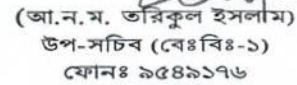 (আ.ন.ম. তরিকুল ইসলাম)
উপ-সচিব (বেঃবিঃ-১)
ফোনঃ ৯৫৪৯১৭৬